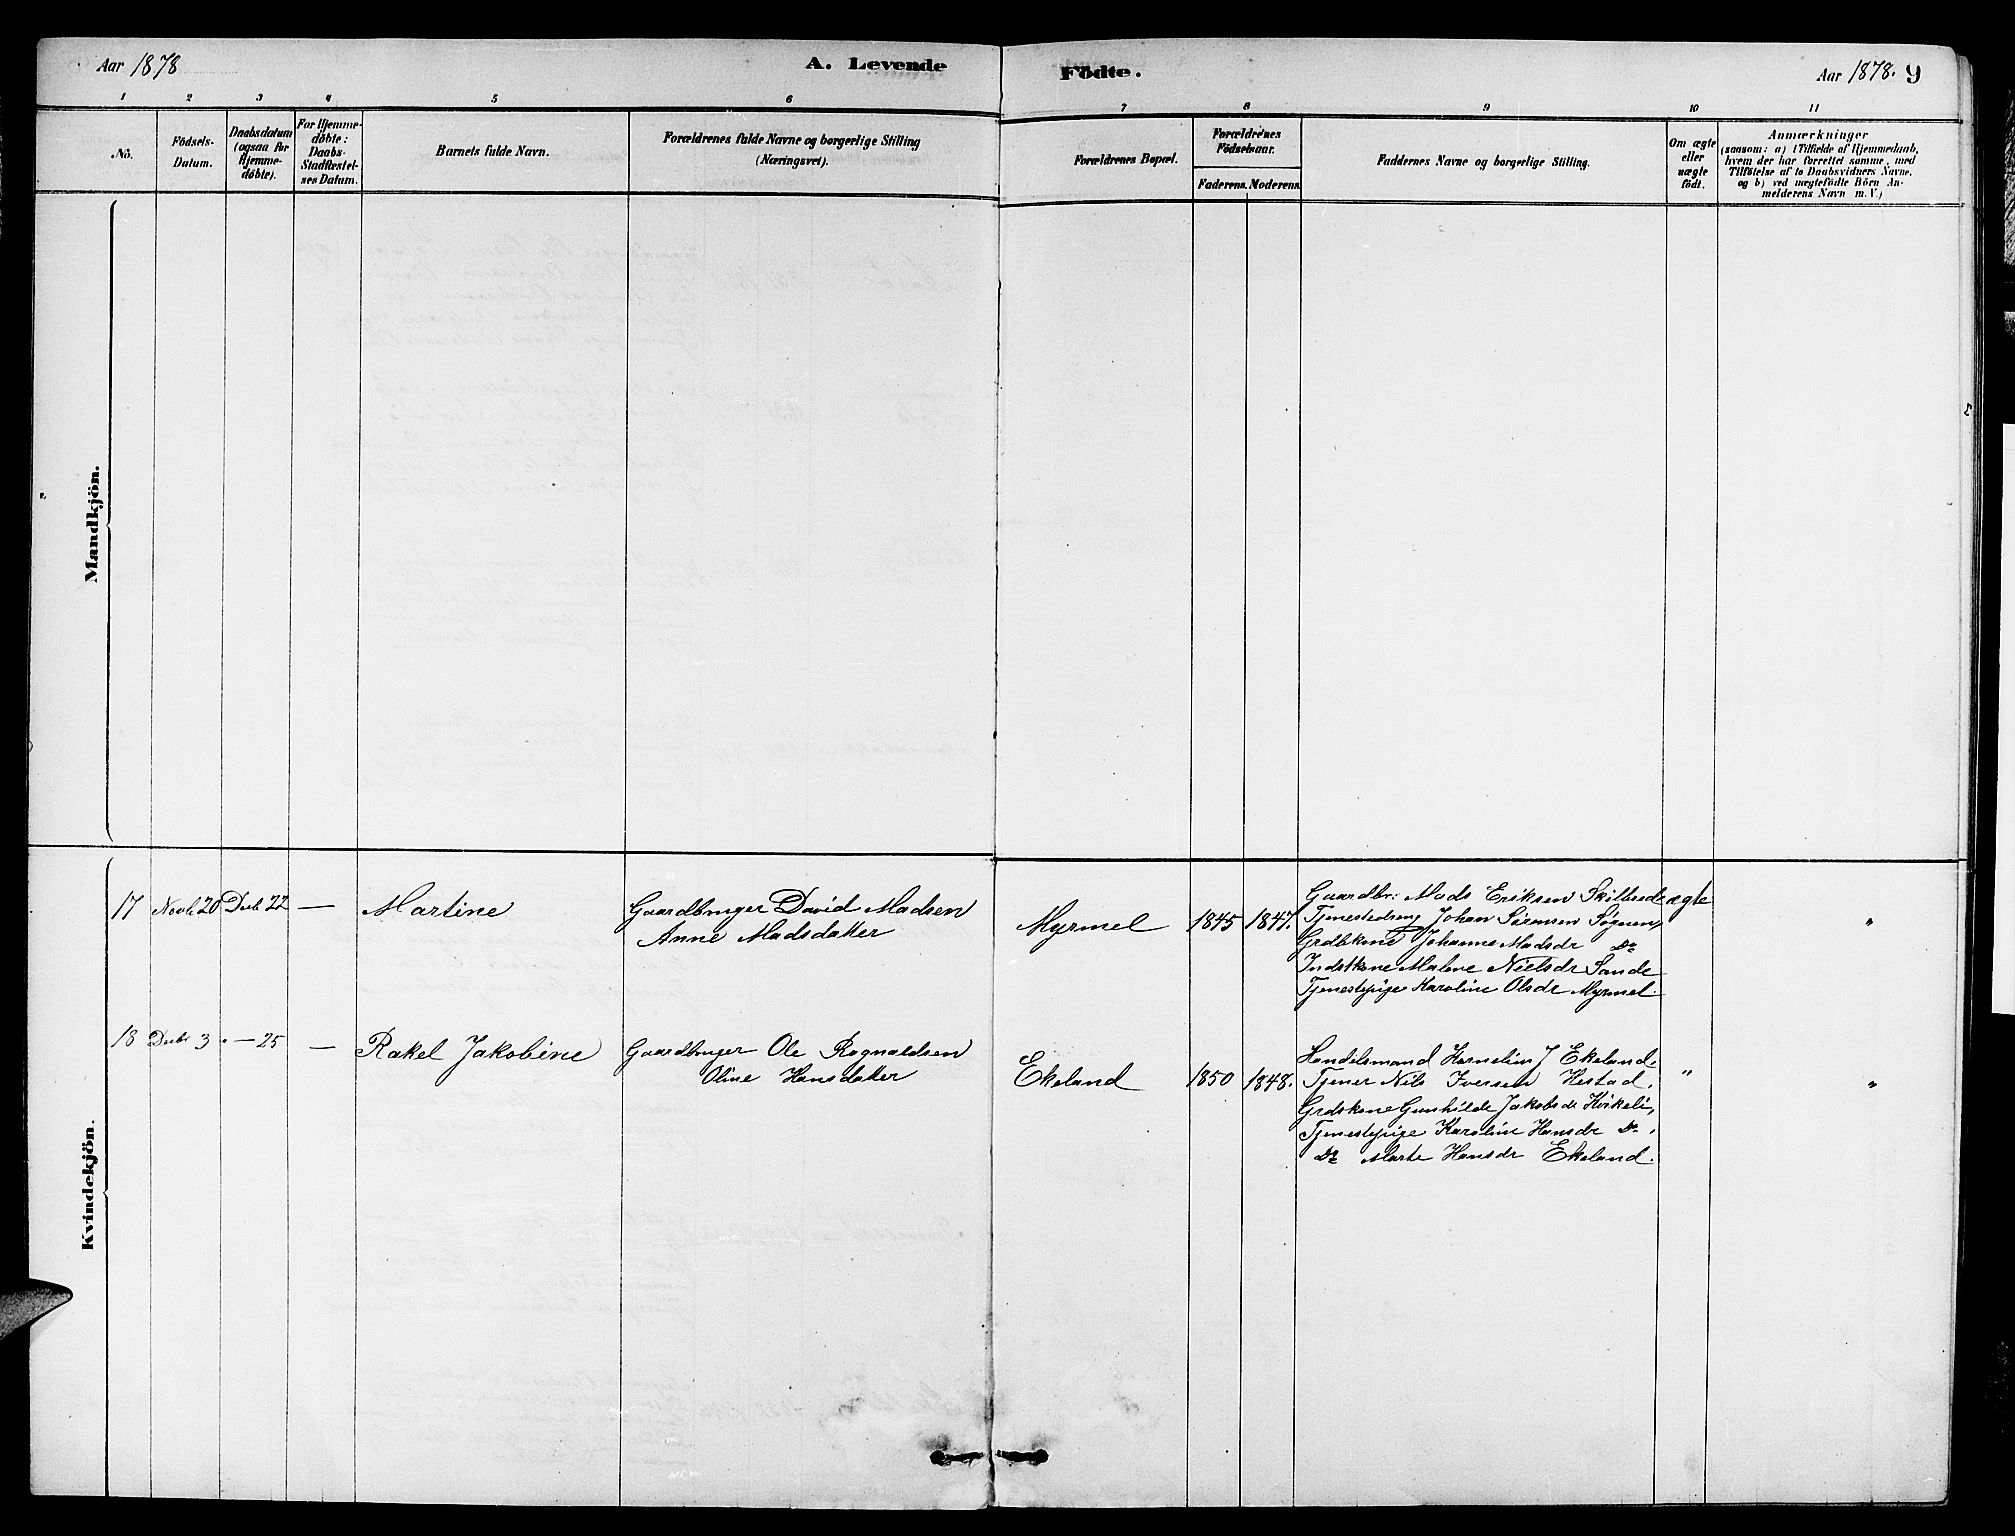 Aar 1878
A. Levende
Födte.
Aar 1878. 9
1 2 3 4 5 6 7 8 9 10 11
No.
Födsels-
Datum.
Daabsdatum
(ogsaa for
Hjemme-
døbte).
For Hjemme-
døbte:
Daabs-
Stadfæstel-
ses Datum.
Barnets fulde Navn.
Forældrenes fulde Navne og borgerlige Stilling
(Næringsvei).
Forældrenes Bopæl.
Forældrenes
Födselsaar.
Faderens. Moderens.
Faddernes Navne og borgerlige Stilling.
Om ægte
eller
uægte
født.
Anmærkninger
(saasom: a) i Tilfælde af Hjemmedaab,
hvem der har forrettet samme, med
Tilføielse af to Daabsvidners Navne,
og b) ved uægtefødte Börn An-
melderens Navn m. V.)
Mandkjön.
Kvindekjön.
17 Novb 20 Decb 22 — Martine
Gaardbruger David Madsen
Anne Madsdatter
Myrmel 1845 1847.
Gaardbr: Mads Eriksen
Tjenestedreng Johan Sørensen Sögnen,
Grdbkone Johanne Madsdr Do
Indstkone Malene Nielsdr Sande
Tjenestepige Karoline Olsdr Myrmel.
ægte "
18 Decbr 3 " — 25 — Rakel Jakobine
Gaardbruger Ole Rognaldsen
Oline Hansdatter
Ekeland 1850 1848.
Handelsmand Kornelius J Ekeland.
Tjener Nils Iversen Hestad.
Grdskone Gunhilde Jakobsdr Kvikeli,
Tjenestepige Karoline Hansdr Do.
Do Marte Hansdr Ekeland.
" "